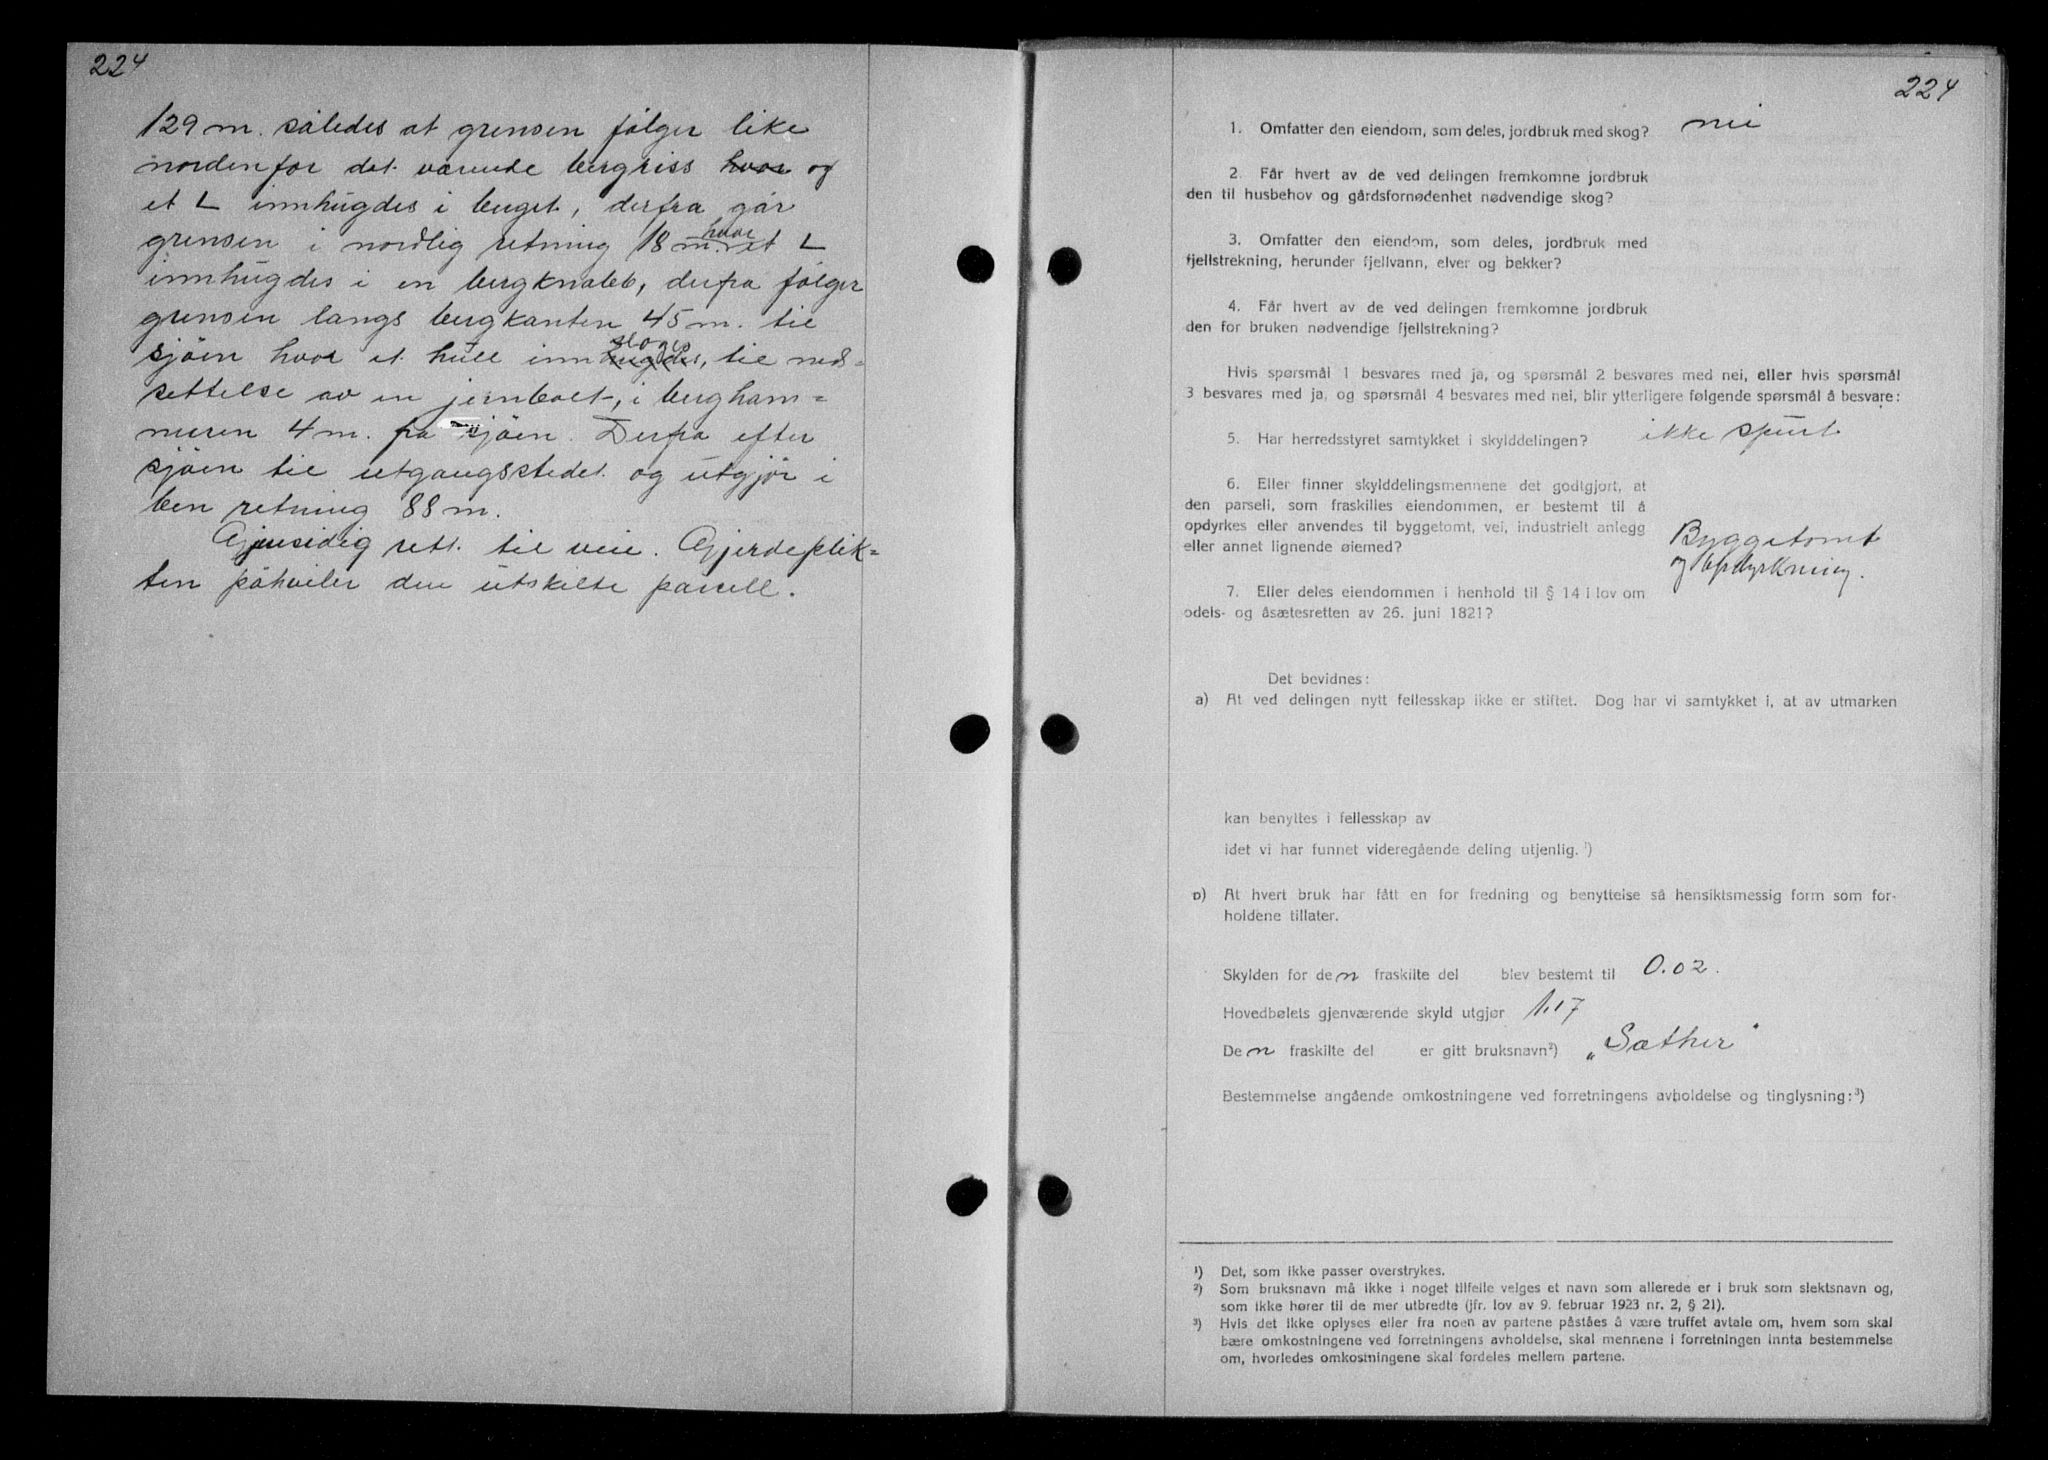 224
129 m. således at grensen følger like
nordenfor det værende bergriss hvor og
et L innhugdes i berget, derfra går
grensen i nordlig retning 18 m. hvor et L
innhugdes i en bergknabb, derfra følger
grensen langs bergkanten 45 m. til
sjøen hvor et hull innhugdes sloges, til ned=
settelse av en jernbolt, i bergham=
meren 4 m. fra sjøen. Derfra efter
sjøen til utgangsstedet og utgjør i
ben retning 88 m.
Gjensidig rett til veie. Gjerdeplik=
ten påhviler den utskilte parcell.
224
1. Omfatter den eiendom, som deles, jordbruk med skog? nei
2. Får hvert av de ved delingen fremkomne jordbruk
den til husbehov og gårdsfornødenhet nødvendige skog?
3. Omfatter den eiendom, som deles, jordbruk med
fjellstrekning, herunder fjellvann, elver og bekker?
4. Får hvert av de ved delingen fremkomne jordbruk
den for bruken nødvendige fjellstrekning?
Hvis spørsmål 1 besvares med ja, og spørsmål 2 besvares med nei, eller hvis spørsmål
3 besvares med ja, og spørsmål 4 besvares med nei, blir ytterligere følgende spørsmål å besvare:
5. Har herredsstyret samtykket i skylddelingen? ikke spurt
6. Eller finner skylddelingsmennene det godtgjort, at
den parsell, som fraskilles eiendommen, er bestemt til å
opdyrkes eller anvendes til byggetomt, vei, industrielt anlegg
eller annet lignende øiemed? Byggetomt
og opdyrkning.
7. Eller deles eiendommen i henhold til § 14 i lov om
odels- og åsætesretten av 26. juni 1821?
Det bevidnes:
a) At ved delingen nytt fellesskap ikke er stiftet. Dog har vi samtykket i, at av utmarken
kan benyttes i fellesskap av
idet vi har funnet videregående deling utjenlig.¹)
b) At hvert bruk har fått en for fredning og benyttelse så hensiktsmessig form som for-
holdene tillater.
Skylden for den fraskilte del blev bestemt til 0.02.
Hovedbølets gjenværende skyld utgjør 1.17
Den fraskilte del er gitt bruksnavn²) „Sæther"
Bestemmelse angående omkostningene ved forretningens avholdelse og tinglysning:³)
¹) Det, som ikke passer overstrykes.
²) Som bruksnavn må ikke i noget tilfelle velges et navn som allerede er i bruk som slektsnavn og,
som ikke hører til de mer utbredte (jfr. lov av 9. februar 1923 nr. 2, § 21).
³) Hvis det ikke oplyses eller fra noen av partene påståes å være truffet avtale om, hvem som skal
bære omkostningene ved forretningens avholdelse, skal mennene i forretningen innta bestemmelse
om, hvorledes omkostningene skal fordeles mellem partene.